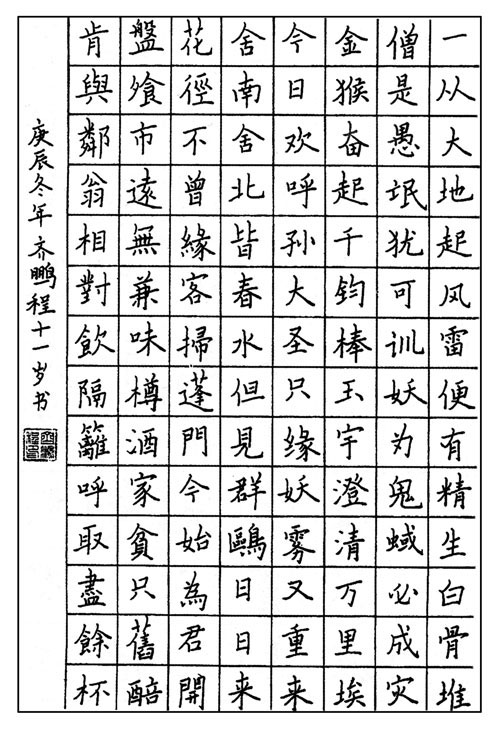 一从大地起风雷便有精生白骨堆
僧是愚氓犹可训妖为鬼蜮必成灾
金猴奋起千钧棒玉宇澄清万里埃
今日欢呼孙大圣只缘妖雾又重来
舍南舍北皆春水但見群鷗日日来
花徑不曾緣客掃蓬門今始為君開
盤飱市遠無兼味樽酒家貧只舊醅
肯與鄰翁相對飲隔籬呼取盡餘杯
庚辰冬年齐鹏程十一岁书